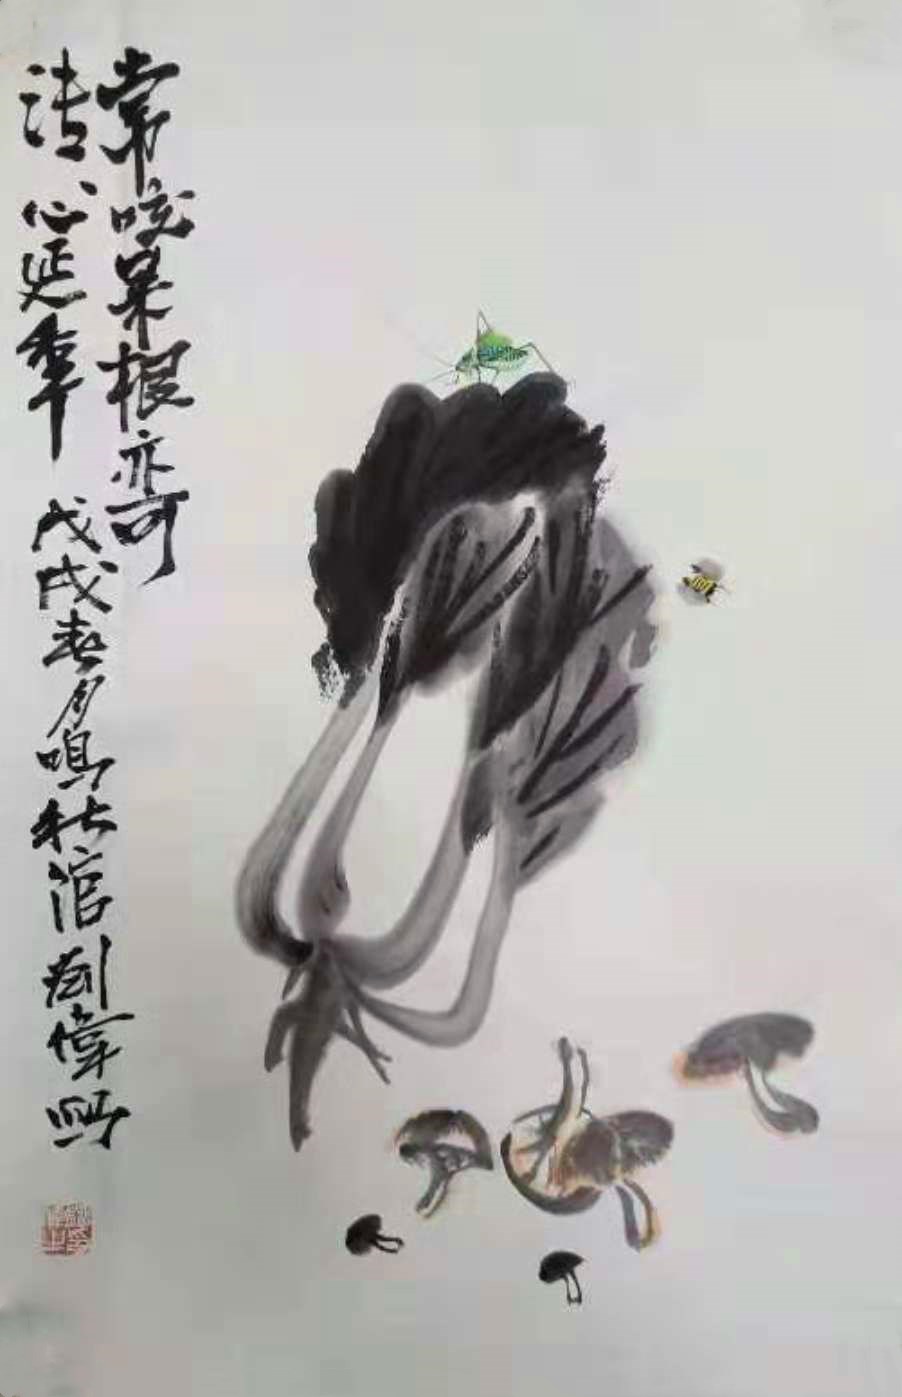 常咬菜根亦可
清心延年 戊戌春月鸣秋馆刘伟写